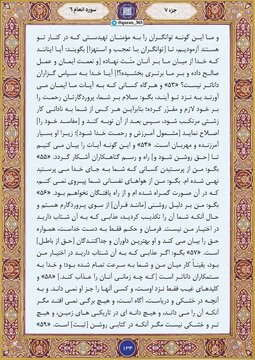 جزء ۷
سوره انعام ۶
و ما این گونه توانگران را به مؤمنان تهیدستی که در کنار تو
هستند آزمودیم، تا [توانگران با تعجب و استهزا] بگویند: آیا اینانند
که خدا از میان ما بر آنان منّت نهاده [و نعمت ایمان و عمل
صالح داده و بر ما برتری بخشیده؟!] آیا خدا به سپاس گزاران
داناتر نیست؟ «۵۳» و هرگاه کسانی که به آیات ما ایمان می
آورند به نزد تو آیند، بگو: سلام بر شما، پروردگارتان رحمت را
بر خود لازم و مقرر کرده؛ بنابراین هر کس از شما به نادانی کار
زشتی مرتکب شود، سپس بعد از آن توبه کند و [مفاسد خود را]
اصلاح نماید [مشمول آمرزش و رحمت خدا شود]؛ زیرا او بسیار
آمرزنده و مهربان است. «۵۴» و این گونه آیات را بیان می کنیم
تا [حق روشن شود] و راه و رسم گناهکاران آشکار گردد. «۵۵»
بگو: من از پرستیدن کسانی که شما به جای خدا می پرستید
نهی شده ام. بگو: من از هواهای نفسانی شما پیروی نمی کنم،
که در آن صورت گمراه شده ام و از راه یافتگان نخواهم بود. «۵۶»
بگو: من بر دلیل روشنی [مانند قرآن] از سوی پروردگارم هستم و
حال آنکه شما آن را تکذیب کردید، عذابی که به آن شتاب دارید
در اختیار من نیست. فرمان و حکم فقط به دست خداست، همواره
حق را بیان می کند و او بهترین داوران و جداکنندگان [حق از باطل]
است. «۵۷» بگو: اگر عذابی که به آن شتاب دارید در اختیار من
بود، یقیناً کار میان من و شما به سرعت تمام شده بود؛ و خدا به
ستمکاران داناتر است [که چه زمانی آنان را عذاب کند.] «۵۸» و
کلیدهای غیب فقط نزد اوست، و کسی آنها را جز او نمی داند. و به
آنچه در خشکی و دریاست، آگاه است، و هیچ برگی نمی افتد مگر
آنکه آن را می داند، و هیچ دانه ای در تاریکی های زمین، و هیچ
تر و خشکی نیست مگر آنکه در کتابی روشن [ثبت] است. «۵۹»
۱۳۴